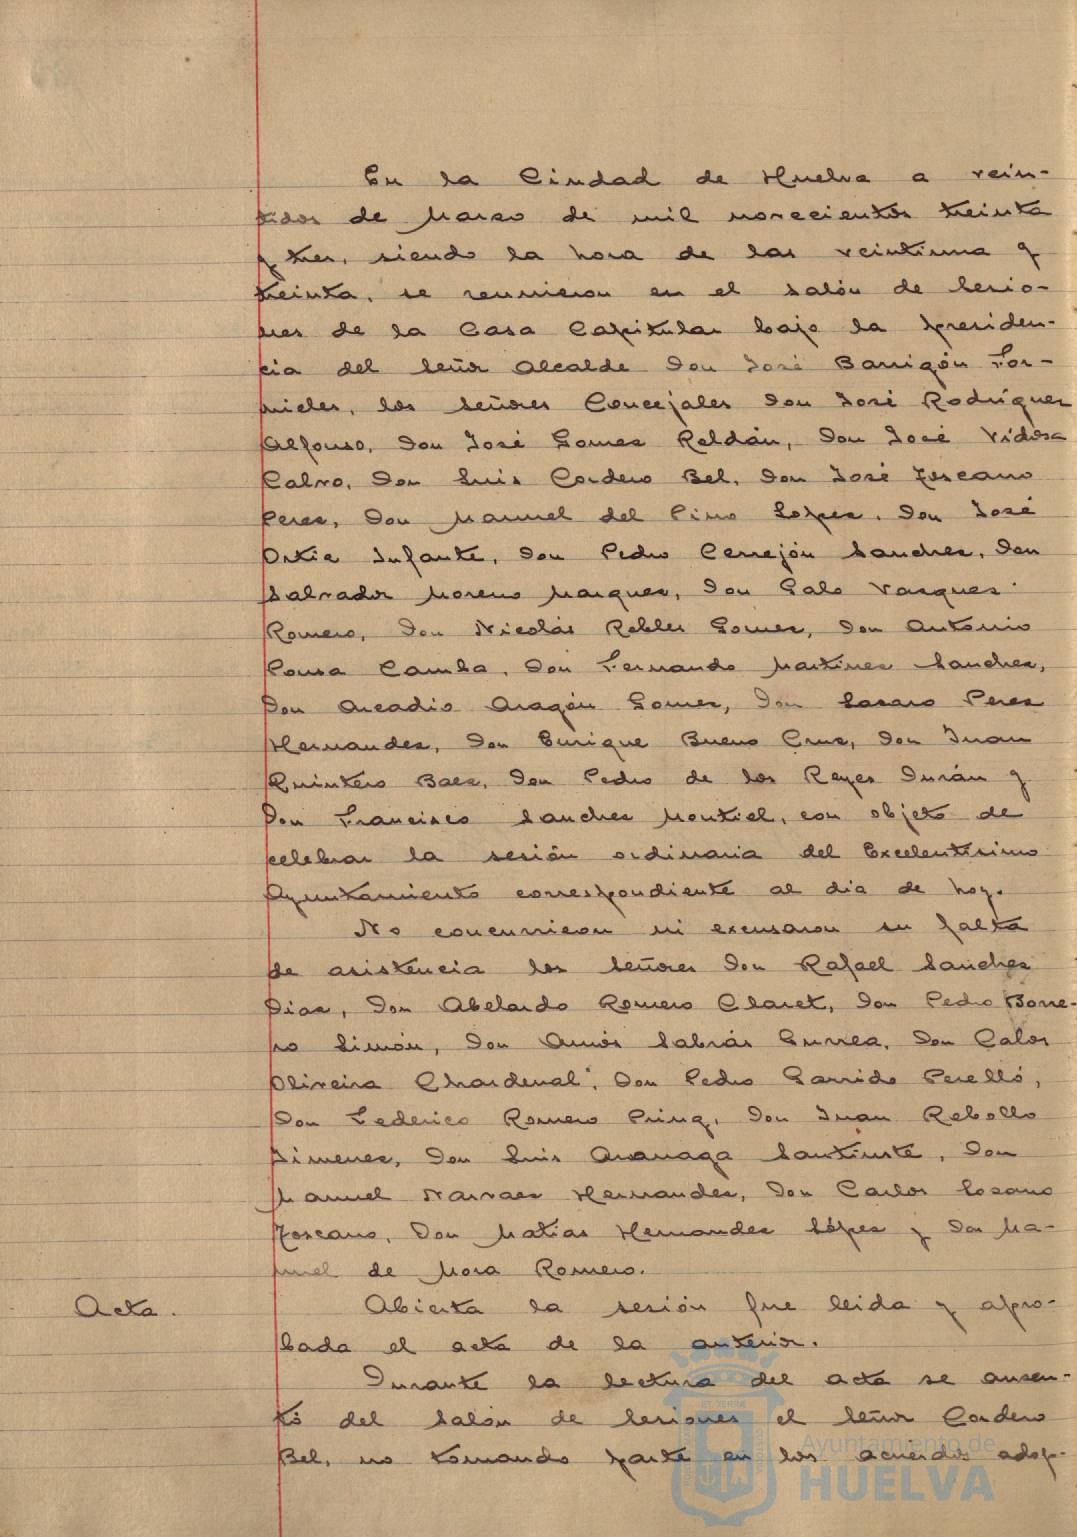 En la Ciudad de Huelva a vein-
tidos de Marzo de mil novecientos treinta
y tres, siendo la hora de las veintiuna y
treinta, se reunieron en el salón de Sesio-
nes de la Casa Capitular bajo la presiden-
cia del Señor Alcalde Don José Barrigón For-
nieles, los Señores Concejales Don José Rodríguez
Alfonso, Don José Gomez Roldán, Don José Vidosa
Calvo, Don Luis Cordero Bel, Don José Toscano
Perez, Don Manuel del Pino Lopez, Don José
Ortiz Infante, Don Pedro Cerrejón Sanchez, Don
Salvador Moreno Marquez, Don Galo Vazquez
Romero, Don Nicolás Robles Gomez, Don Antonio
Pousa Camba, Don Fernando Martinez Sanchez,
Don Arcadio Aragón Gomez, Don Lazaro Perez
Hernandez, Don Enrique Bueno Cruz, Don Juan
Quintero Baez, Don Pedro de los Reyes Durán y
Don Francisco Sanchez Montiel, con objeto de
celebrar la sesión ordinaria del Excelentísimo
Ayuntamiento correspondiente al dia de hoy.
No concurrieron ni excusaron su falta
de asistencia los Señores Don Rafael Sanchez
Diaz, Don Abelardo Romero Claret, Don Pedro Borre-
ro Limón, Don Amós Sabrás Gurrea, Don Calos
Oliveira Chardenal, Don Pedro Garrido Perelló,
Don Federico Romero Pring, Don Juan Rebollo
Jimenez, Don Luis Aranaga Santiuste, Don
Manuel Narvaez Hernandez, Don Carlos Lozano
Toscano, Don Matias Hernandez López y Don Ma-
nuel de Mora Romero.
Acta.
Abierta la sesión fue leida y apro-
bada el acta de la anterior.
Durante la lectura del acta se ausen-
tó del Salón de Sesiones el Señor Cordero
Bel, no tomando parte en los acuerdos adop-
Ayuntamiento de
HUELVA